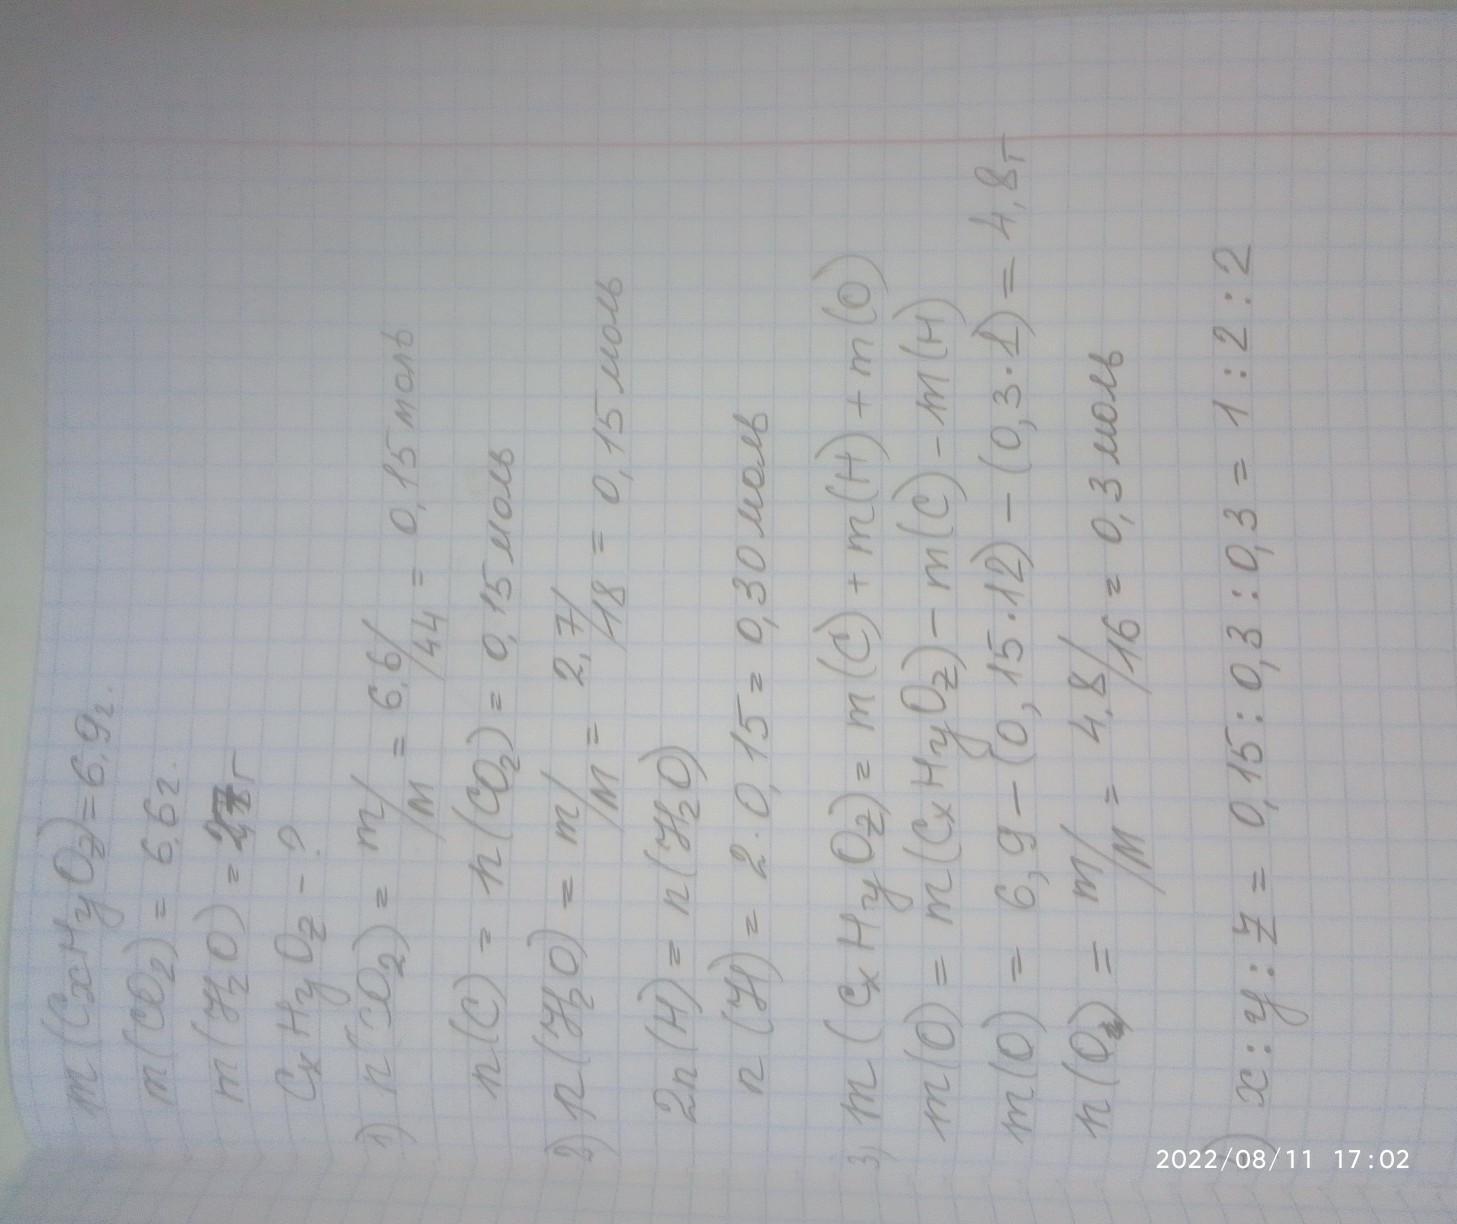 m(CxHyOz)=6,9г.
m(CO₂)=6,6г.
m(H₂O)=2,7г
CxHyOz-?
1) n(CO₂)= m/M = 6,6/44 = 0,15 моль
n(C) = n(CO₂)= 0,15 моль
2) n(H₂O)= m/M = 2,7/18 = 0,15 моль
2n(H)= n(H₂O)
n(H)= 2·0,15= 0,30 моль
3) m(CxHyOz)= m(C)+m(H)+m(O)
m(O)= m(CxHyOz)-m(C)-m(H)
m(O) = 6,9-(0,15·12)-(0,3·1)=4,8г
n(O)= m/M = 4,8/16= 0,3 моль
) x:y:z= 0,15:0,3:0,3= 1:2:2
2022/08/11 17:02